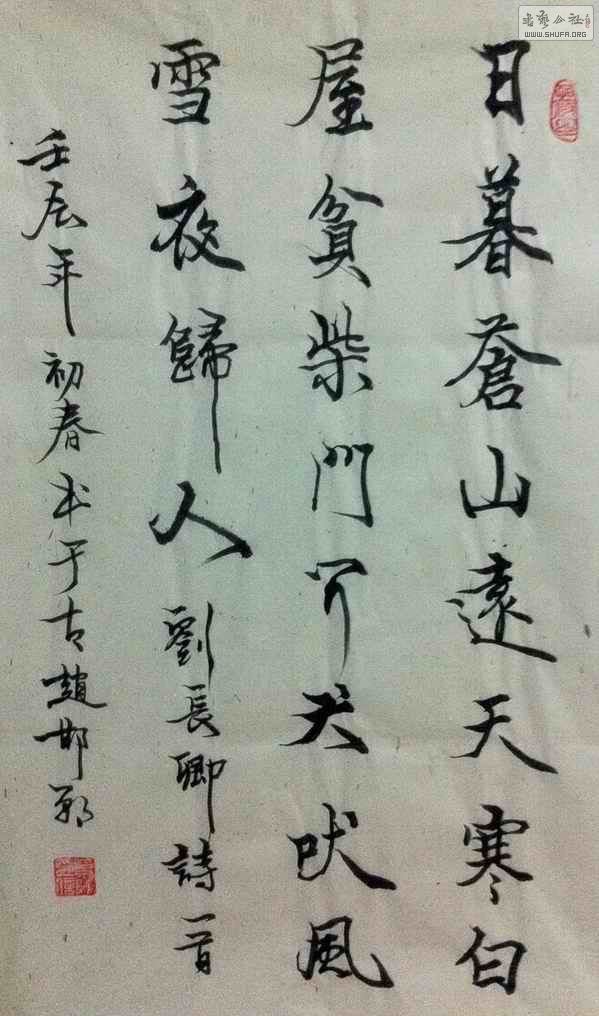 日暮蒼山遠天寒白
屋貧柴門闻犬吠風
雪夜歸人劉長卿詩一首
壬辰年初春书于古趙邯鄲
书艺公社
WWW.SHUFA.ORG